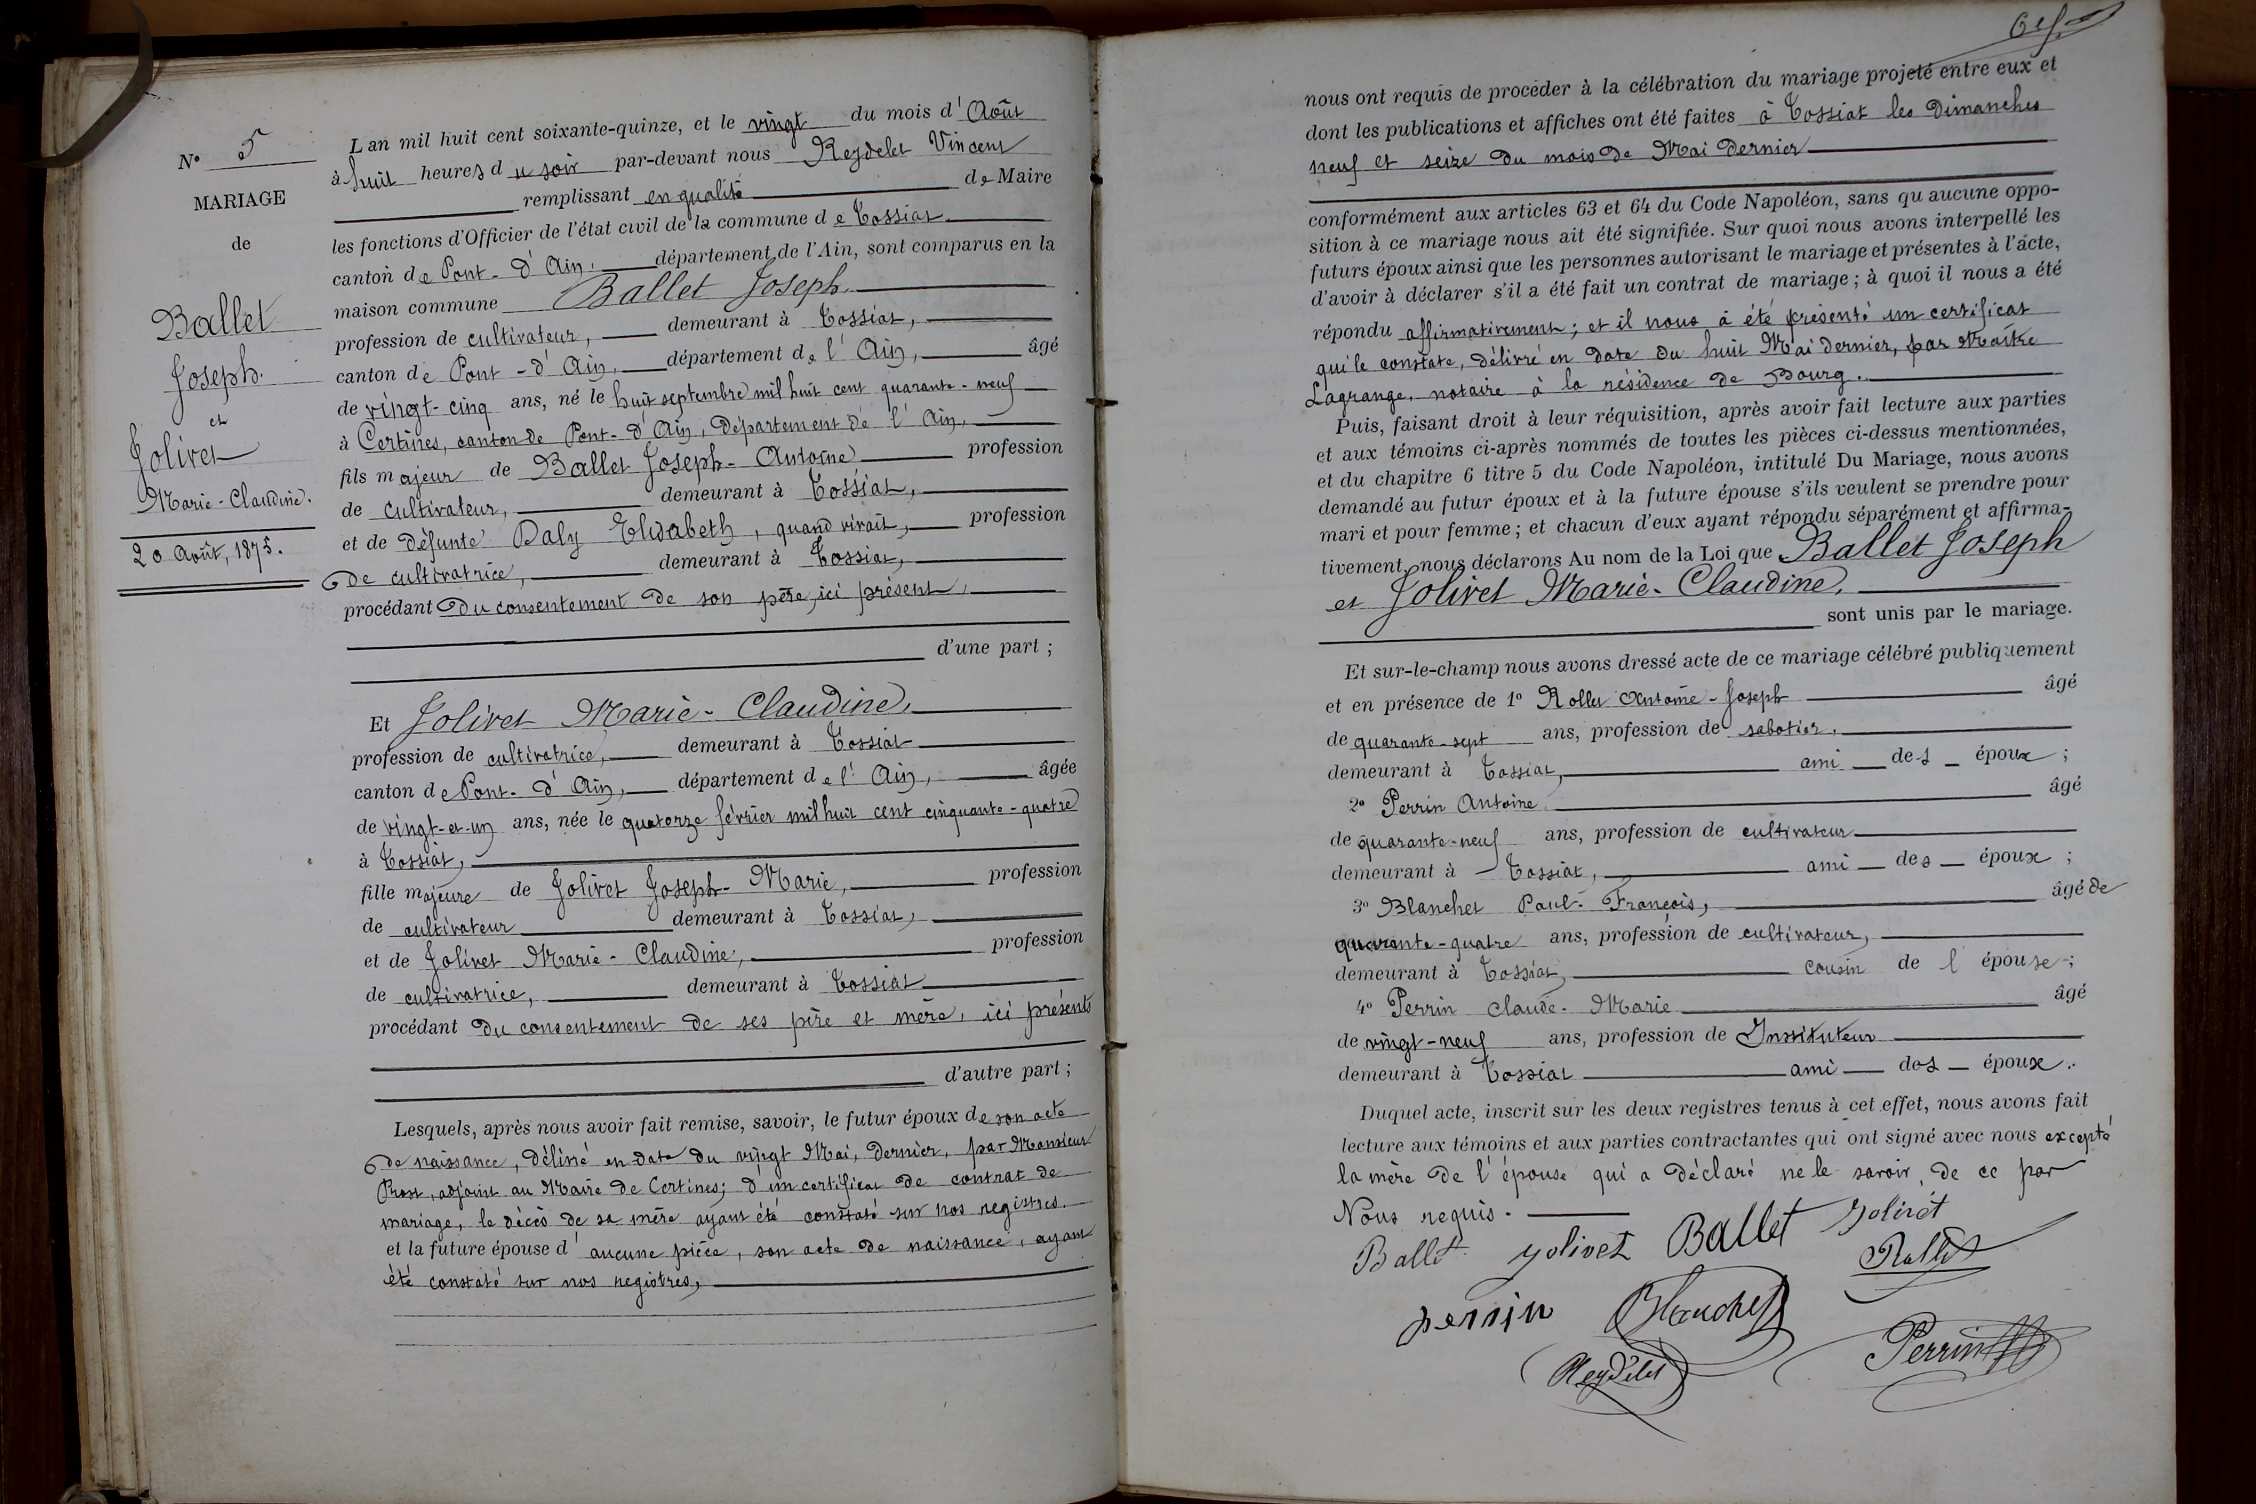 N° 5
MARIAGE
de
Ballet
Joseph.
et
Jolivet
Marie-Claudine.
20 Août, 1875.
L'an mil huit cent soixante-quinze, et le vingt du mois d'Août
à huit heures du soir par-devant nous Reydelet Vincent
remplissant en qualité de Maire
les fonctions d'Officier de l'état civil de la commune de Tossiat
canton de Pont-d'Ain, département de l'Ain, sont comparus en la
maison commune Ballet Joseph.
profession de cultivateur, demeurant à Tossiat,
canton de Pont-d'Ain, département de l'Ain, âgé
de vingt-cinq ans, né le huit septembre mil huit cent quarante-neuf
à Certines, canton de Pont-d'Ain, Département de l'Ain,
fils majeur de Ballet Joseph-Antoine profession
de cultivateur, demeurant à Tossiat,
et de défunte Daly Elisabeth, quand vivait, profession
de cultivatrice, demeurant à Tossiat,
procédant du consentement de son père, ici présent,
d'une part ;
Et Jolivet Marie-Claudine,
profession de cultivatrice, demeurant à Tossiat
canton de Pont-d'Ain, département de l'Ain, âgée
de vingt-et-un ans, née le quatorze février mil huit cent cinquante-quatre
à Tossiat,
fille majeure de Jolivet Joseph-Marie, profession
de cultivateur demeurant à Tossiat,
et de Jolivet Marie-Claudine, profession
de cultivatrice, demeurant à Tossiat
procédant du consentement de ses père et mère, ici présents
d'autre part ;
Lesquels, après nous avoir fait remise, savoir, le futur époux de son acte
de naissance, délivré en date du vingt Mai, dernier, par Monsieur
Prost, adjoint au Maire de Certines; d'un certificat de contrat de
mariage, le décès de sa mère ayant été constaté sur nos registres.
et la future épouse d'aucune pièce, son acte de naissance, ayant
été constaté sur nos registres,
nous ont requis de procéder à la célébration du mariage projeté entre eux et
dont les publications et affiches ont été faites à Tossiat les Dimanches
neuf et seize du mois de Mai dernier
conformément aux articles 63 et 64 du Code Napoléon, sans qu'aucune oppo-
sition à ce mariage nous ait été signifiée. Sur quoi nous avons interpellé les
futurs époux ainsi que les personnes autorisant le mariage et présentes à l'acte,
d'avoir à déclarer s'il a été fait un contrat de mariage ; à quoi il nous a été
répondu affirmativement; et il nous a été présenté un certificat
qui le constate, délivré en date du huit Mai dernier, par Maître
Lagrange, notaire à la résidence de Bourg.
Puis, faisant droit à leur réquisition, après avoir fait lecture aux parties
et aux témoins ci-après nommés de toutes les pièces ci-dessus mentionnées,
et du chapitre 6 titre 5 du Code Napoléon, intitulé Du Mariage, nous avons
demandé au futur époux et à la future épouse s'ils veulent se prendre pour
mari et pour femme ; et chacun d'eux ayant répondu séparément et affirma-
tivement, nous déclarons Au nom de la Loi que Ballet Joseph
et Jolivet Marie-Claudine,
sont unis par le mariage.
Et sur-le-champ nous avons dressé acte de ce mariage célébré publiquement
et en présence de 1° Rollet Antoine-Joseph âgé
de quarante-sept ans, profession de sabotier,
demeurant à Tossiat, ami des époux ;
2° Perrin Antoine âgé
de quarante-neuf ans, profession de cultivateur
demeurant à Tossiat, ami des époux ;
3° Blanchet Paul-François, âgé de
quarante-quatre ans, profession de cultivateur,
demeurant à Tossiat, cousin de l'épouse ;
4° Perrin Claude-Marie âgé
de vingt-neuf ans, profession de Instituteur
demeurant à Tossiat ami des époux.
Duquel acte, inscrit sur les deux registres tenus à cet effet, nous avons fait
lecture aux témoins et aux parties contractantes qui ont signé avec nous excepté
la mère de l'épouse qui a déclaré ne le savoir, de ce par
Nous requis.
Ballet jolivet Ballet Jolivet
Rollet
perrin Blanchet
Reydelet Perrin